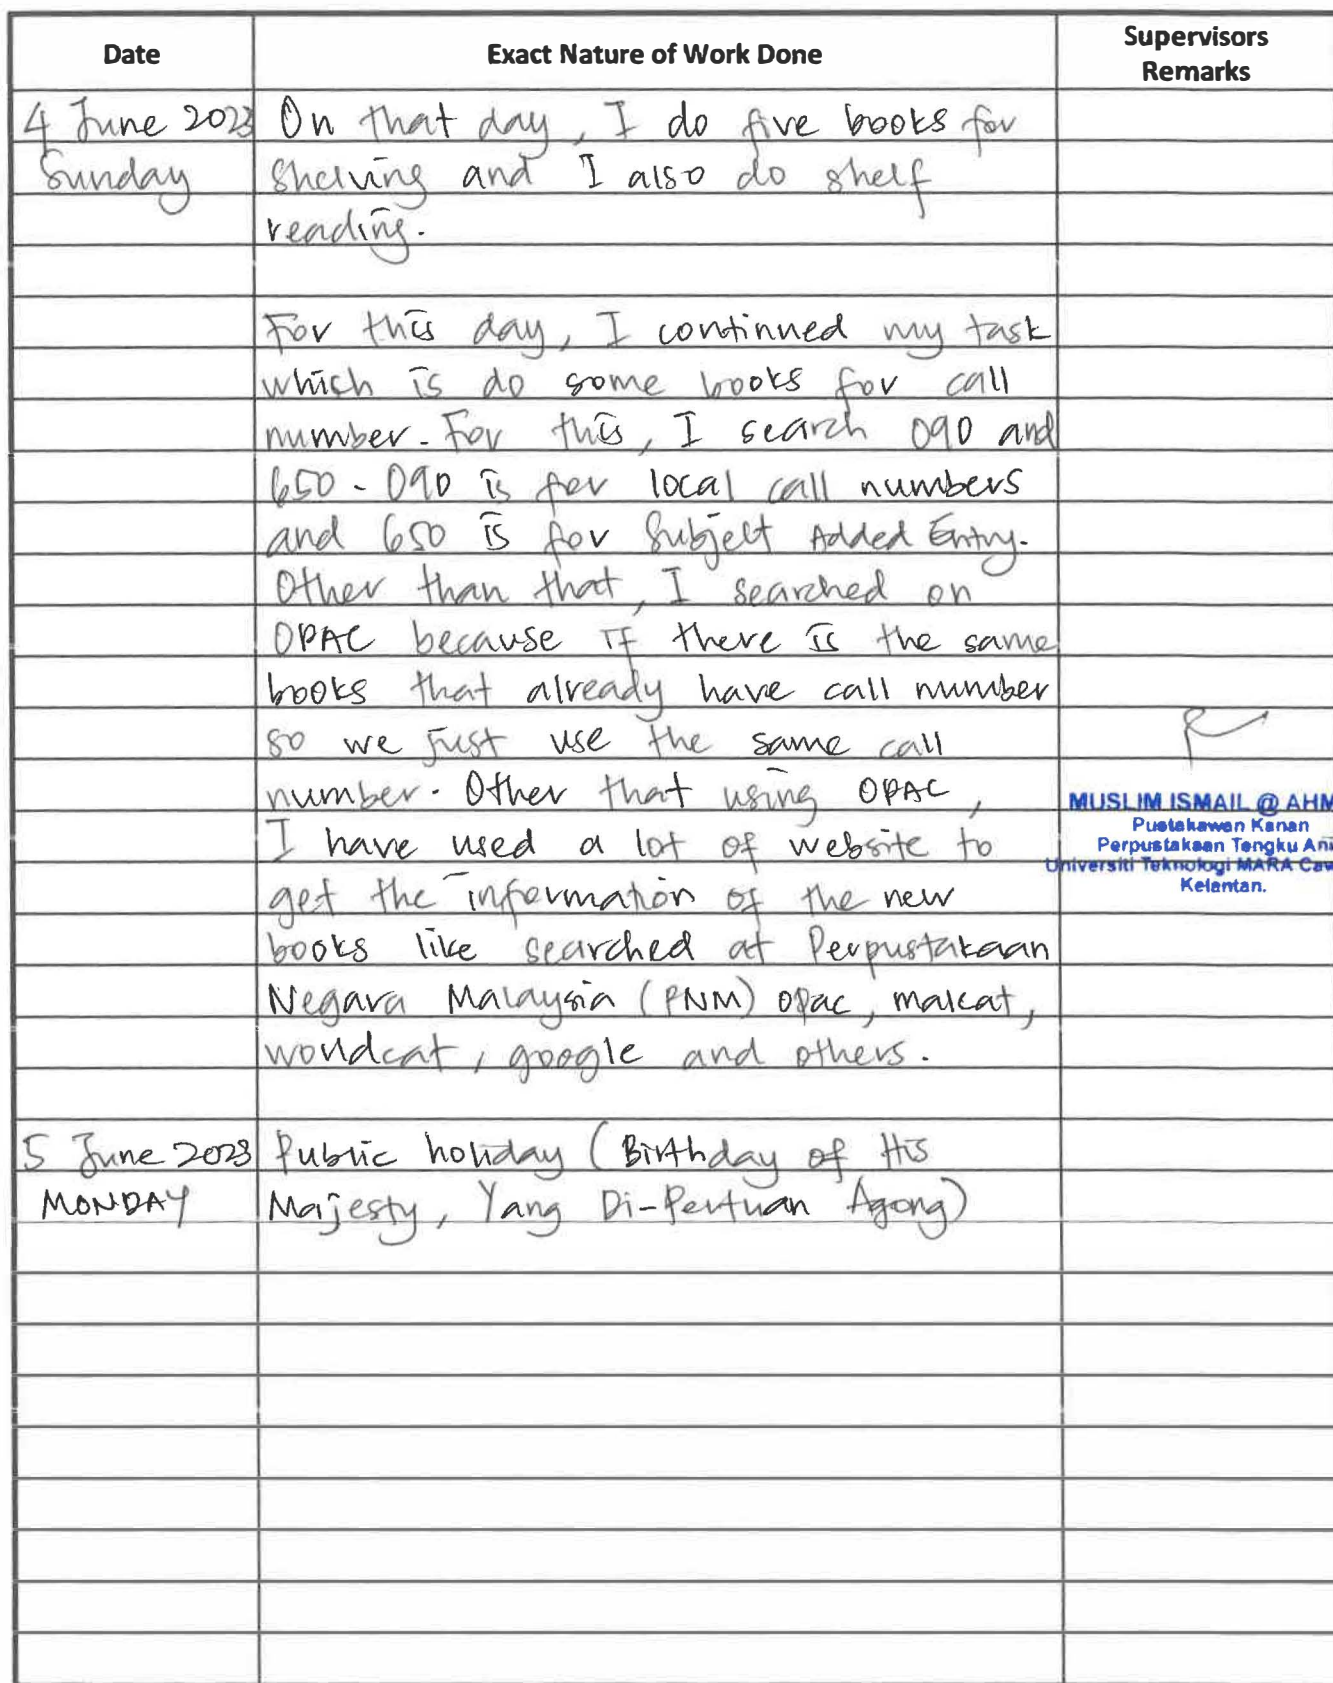 Date
Exact Nature of Work Done
Supervisors
Remarks
4 June 2023
Sunday
On that day, I do five books for
Shelving and I also do shelf
reading.
For this day, I continued my task
which is do some books for call
number. For this, I search 090 and
650. 090 is for local call numbers
and 650 is for Subject Added Entry.
Other than that, I searched on
OPAC because if there is the same
books that already have call number
so we just use the same call
number. Other that using OPAC,
I have used a lot of website to
get the information of the new
books like searched at Perpustakaan
Negara Malaysia (PNM) opac, malcat,
worldcat, google and others.
MUSLIM ISMAIL @ AHM
Pustakawan Kanan
Perpustakaan Tengku Ani
Universiti Teknologi MARA Caw
Kelantan.
5 June 2023
MONDAY
Public holiday (Birthday of His
Majesty, Yang Di-Pertuan Agong)